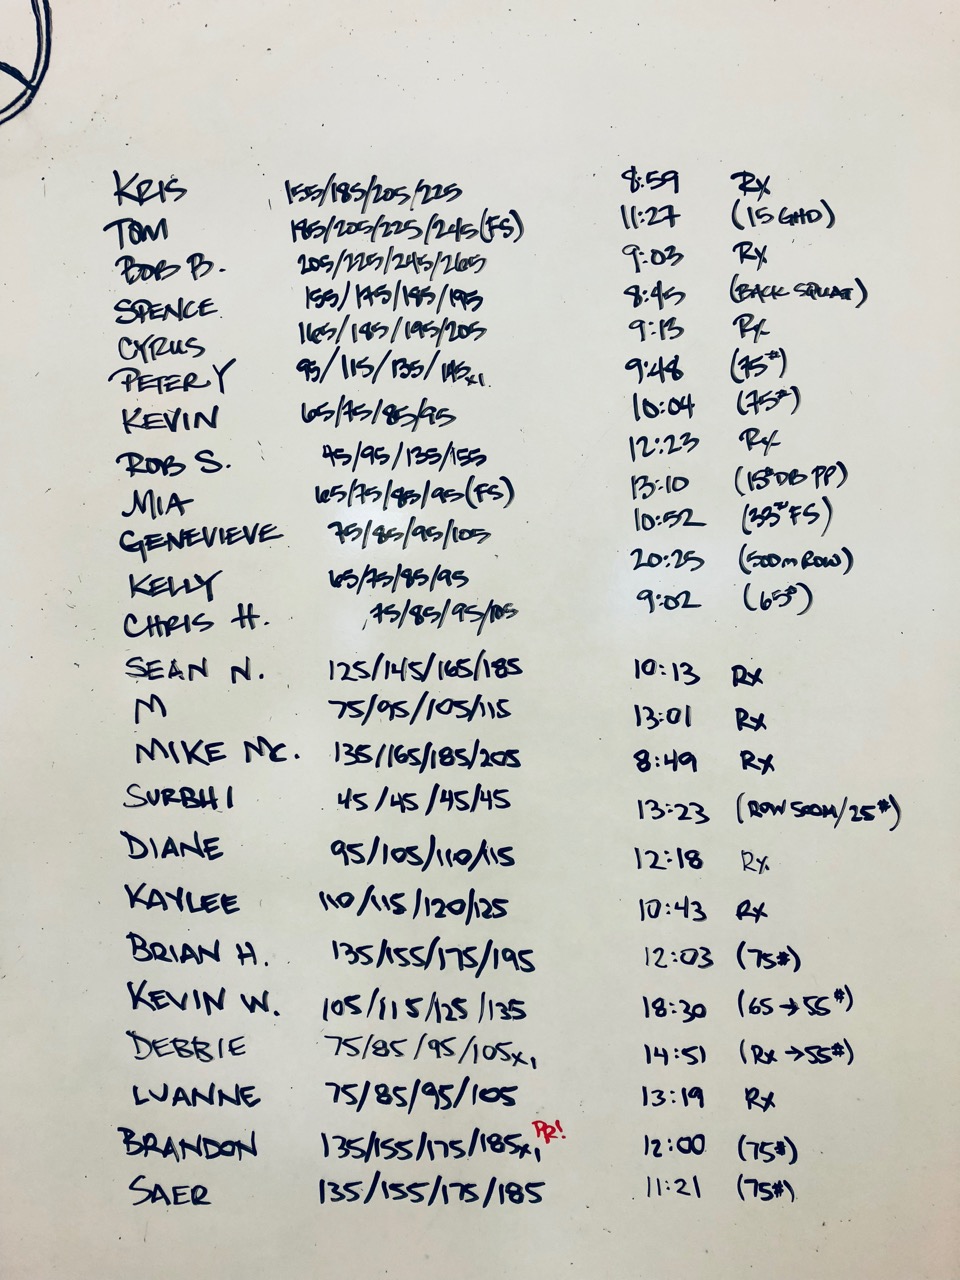 KRIS 155/185/205/225 8:59 Rx
TOM 185/205/225/245(FS) 11:27 (15 GHD)
BOB B. 205/225/245/265 9:03 Rx
SPENCE 155/175/185/195 8:45 (BACK SQUAT)
CYRUS 165/185/195/205 9:13 Rx
PETER Y 95/115/135/145x1 9:48 (75#)
KEVIN 65/75/85/95 10:04 (75#)
ROB S. 45/95/135/155 12:23 Rx
MIA 65/75/85/95(FS) 13:10 (15#DB PP)
GENEVIEVE 75/85/95/105 10:52 (33#FS)
KELLY 65/75/85/95 20:25 (500m ROW)
CHRIS H. 75/85/95/105 9:02 (65#)
SEAN N. 125/145/165/185 10:13 Rx
M 75/95/105/115 13:01 Rx
MIKE MC. 135/165/185/205 8:49 Rx
SURBHI 45/45/45/45 13:23 (ROW 500M/25#)
DIANE 95/105/110/115 12:18 Rx
KAYLEE 110/115/120/125 10:43 Rx
BRIAN H. 135/155/175/195 12:03 (75#)
KEVIN W. 105/115/125/135 18:30 (65→55#)
DEBBIE 75/85/95/105x1 14:51 (Rx→55#)
LUANNE 75/85/95/105 13:19 Rx
BRANDON 135/155/175/185x1 PR! 12:00 (75#)
SAER 135/155/175/185 11:21 (75#)